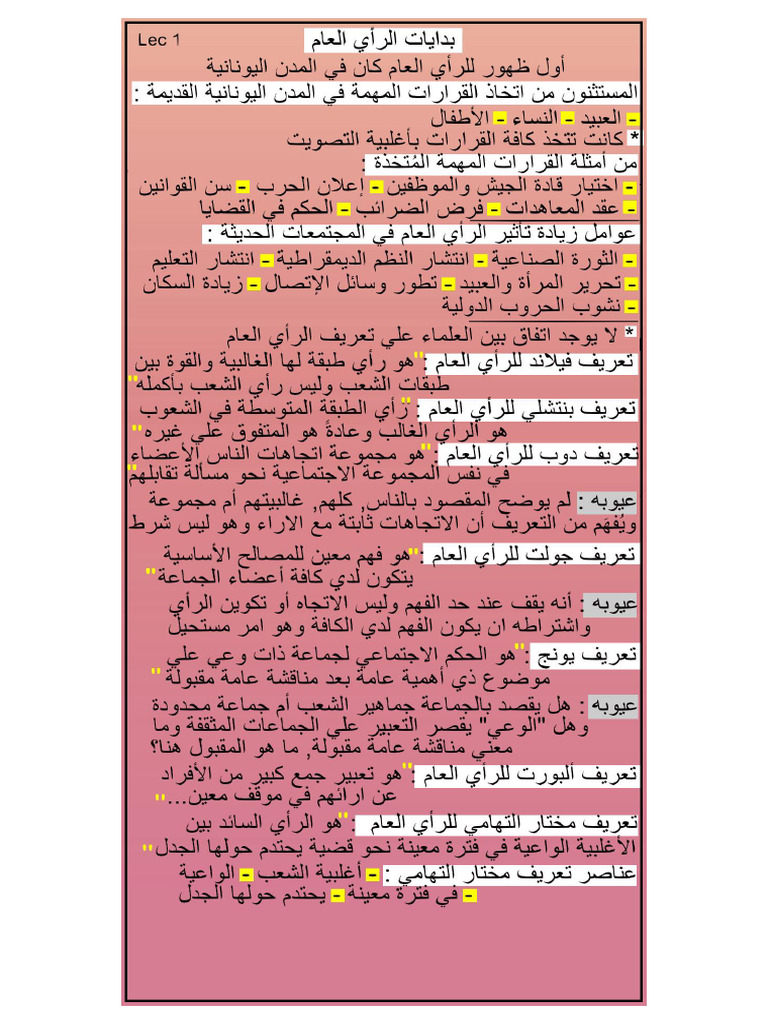 Lec 1
بدايات الرأي العام
أول ظهور للرأي العام كان في المدن اليونانية
المستثنون من اتخاذ القرارات المهمة في المدن اليونانية القديمة :
- العبيد - النساء - الأطفال
* كانت تتخذ كافة القرارات بأغلبية التصويت
من أمثلة القرارات المهمة المُتخذة :
- اختيار قادة الجيش والموظفين - إعلان الحرب - سن القوانين
- عقد المعاهدات - فرض الضرائب - الحكم في القضايا
عوامل زيادة تأثير الرأي العام في المجتمعات الحديثة :
- الثورة الصناعية - انتشار النظم الديمقراطية - انتشار التعليم
- تحرير المرأة والعبيد - تطور وسائل الإتصال - زيادة السكان
- نشوب الحروب الدولية
* لا يوجد اتفاق بين العلماء علي تعريف الرأي العام
تعريف فيلاند للرأي العام : "هو رأي طبقة لها الغالبية والقوة بين
طبقات الشعب وليس رأي الشعب بأكمله"
تعريف بنتشلي للرأي العام : "رأي الطبقة المتوسطة في الشعوب
هو الرأي الغالب وعادةً هو المتفوق علي غيره"
تعريف دوب للرأي العام : "هو مجموعة اتجاهات الناس الأعضاء
في نفس المجموعة الاجتماعية نحو مسألة تقابلهم"
عيوبه : لم يوضح المقصود بالناس, كلهم, غالبيتهم أم مجموعة
ويُفهَم من التعريف أن الاتجاهات ثابتة مع الاراء وهو ليس شرط
تعريف جولت للرأي العام : "هو فهم معين للمصالح الأساسية
يتكون لدي كافة أعضاء الجماعة"
عيوبه : أنه يقف عند حد الفهم وليس الاتجاه أو تكوين الرأي
واشتراطه ان يكون الفهم لدي الكافة وهو امر مستحيل
تعريف يونج : "هو الحكم الاجتماعي لجماعة ذات وعي علي
موضوع ذي أهمية عامة بعد مناقشة عامة مقبولة "
عيوبه : هل يقصد بالجماعة جماهير الشعب أم جماعة محدودة
وهل "الوعي" يقصر التعبير علي الجماعات المثقفة وما
معني مناقشة عامة مقبولة, ما هو المقبول هنا؟
تعريف ألبورت للرأي العام : "هو تعبير جمع كبير من الأفراد
عن ارائهم في موقف معين..."
تعريف مختار التهامي للرأي العام : "هو الرأي السائد بين
الأغلبية الواعية في فترة معينة نحو قضية يحتدم حولها الجدل"
عناصر تعريف مختار التهامي : - أغلبية الشعب - الواعية
- في فترة معينة - يحتدم حولها الجدل